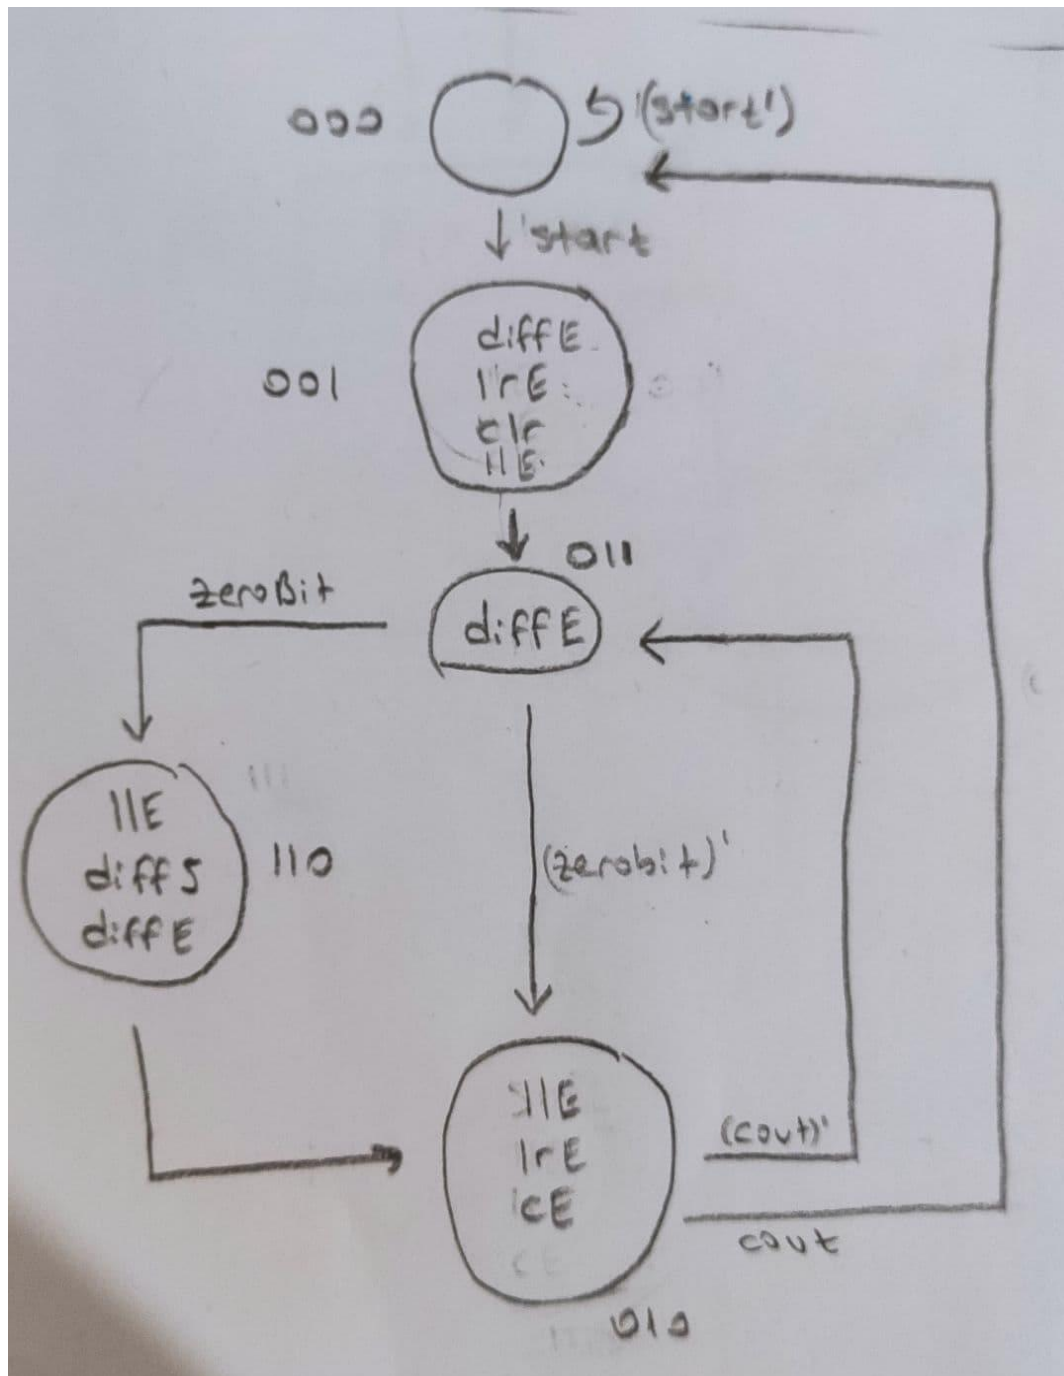 000
(start')
start
001
diffE
lrE
clr
llE
011
zeroBit
diffE
llE
diffS
diffE
110
(zerobit)'
llE
lrE
cE
(cout)'
cout
010